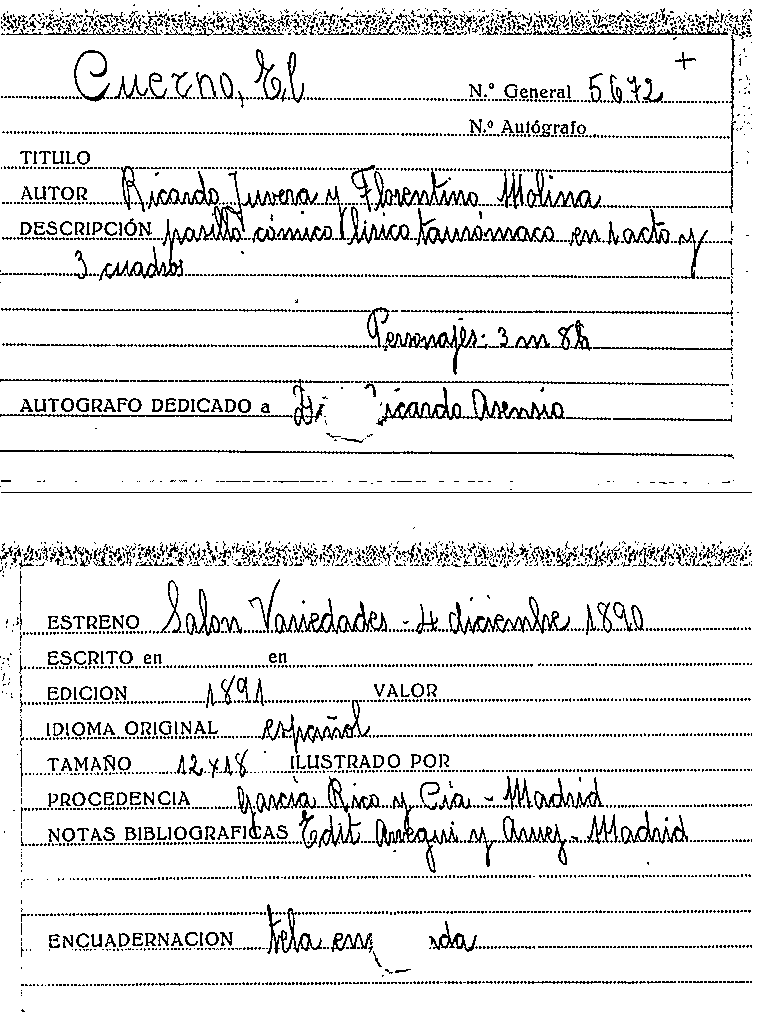 Cuerno, El +
N.º General 5672
N.º Autógrafo
TITULO
AUTOR Ricardo Juvera y Florentino Molina
DESCRIPCIÓN pasillo cómico lírico taurómaco en 1 acto y
3 cuadros
Personajes: 3 m 8 h
AUTOGRAFO DEDICADO a Ricardo Asensio
ESTRENO Salon Variedades - 4 diciembre 1890
ESCRITO en en
EDICION 1891 VALOR
IDIOMA ORIGINAL español
TAMAÑO 12x18 ILUSTRADO POR
PROCEDENCIA García Rico y Cía - Madrid
NOTAS BIBLIOGRAFICAS Edit Arregui y Aruej - Madrid
ENCUADERNACION tela